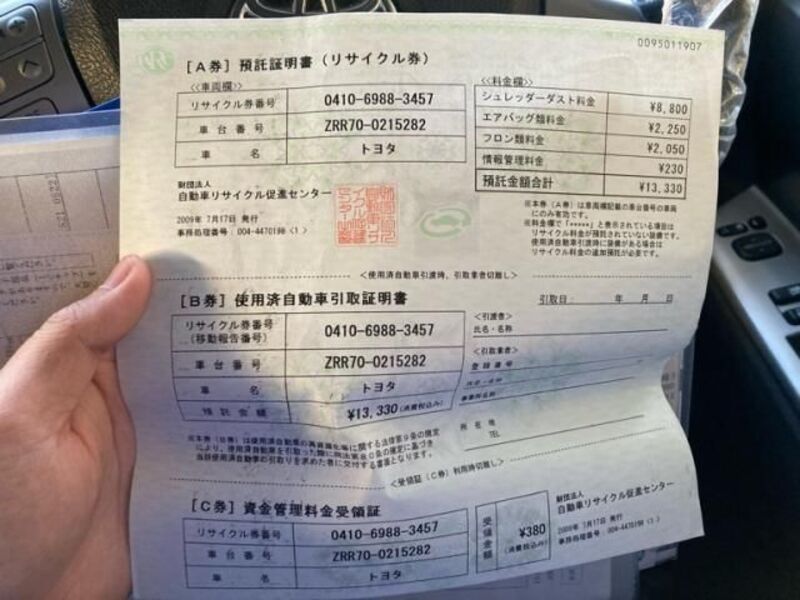 0095011907
[A券] 預託証明書 (リサイクル券)
<<車両欄>>
リサイクル券番号 0410-6988-3457
車台番号 ZRR70-0215282
車名 トヨタ
<<料金欄>>
シュレッダーダスト料金 ¥8,800
エアバッグ類料金 ¥2,250
フロン類料金 ¥2,050
情報管理料金 ¥230
預託金額合計 ¥13,330
財団法人
自動車リサイクル促進センター
2009年 7月17日 発行
事務処理番号:004-4470198 <1>
※本券(A券)は車両欄記載の車台番号の車両
にのみ有効です。
※料金欄で「*****」と表示されている項目は
リサイクル料金が預託されていない装備です。
使用済自動車引渡時に装備がある場合は
リサイクル料金の追加預託が必要です。
<使用済自動車引渡時、引取業者切離し>
[B券] 使用済自動車引取証明書
引取日: 年 月 日
リサイクル券番号
(移動報告番号) 0410-6988-3457
車台番号 ZRR70-0215282
車名 トヨタ
預託金額 ¥13,330(消費税込み)
<引渡者>
氏名・名称
<引取業者>
登録番号
氏名・名称
事業所名称
所在地
TEL
※本券(B券)は使用済自動車の再資源化等に関する法律第9条の規定
により、使用済自動車を引取った際に同法第80条の規定に基づき
当該使用済自動車の引取りを求めた者に交付する書面となります。
<受領証(C券)利用時切離し>
[C券] 資金管理料金受領証
リサイクル券番号 0410-6988-3457
車台番号 ZRR70-0215282
車名 トヨタ
受領金額 ¥380
(消費税込み)
財団法人
自動車リサイクル促進センター
2009年 7月17日 発行
事務処理番号:004-4470198 <1>